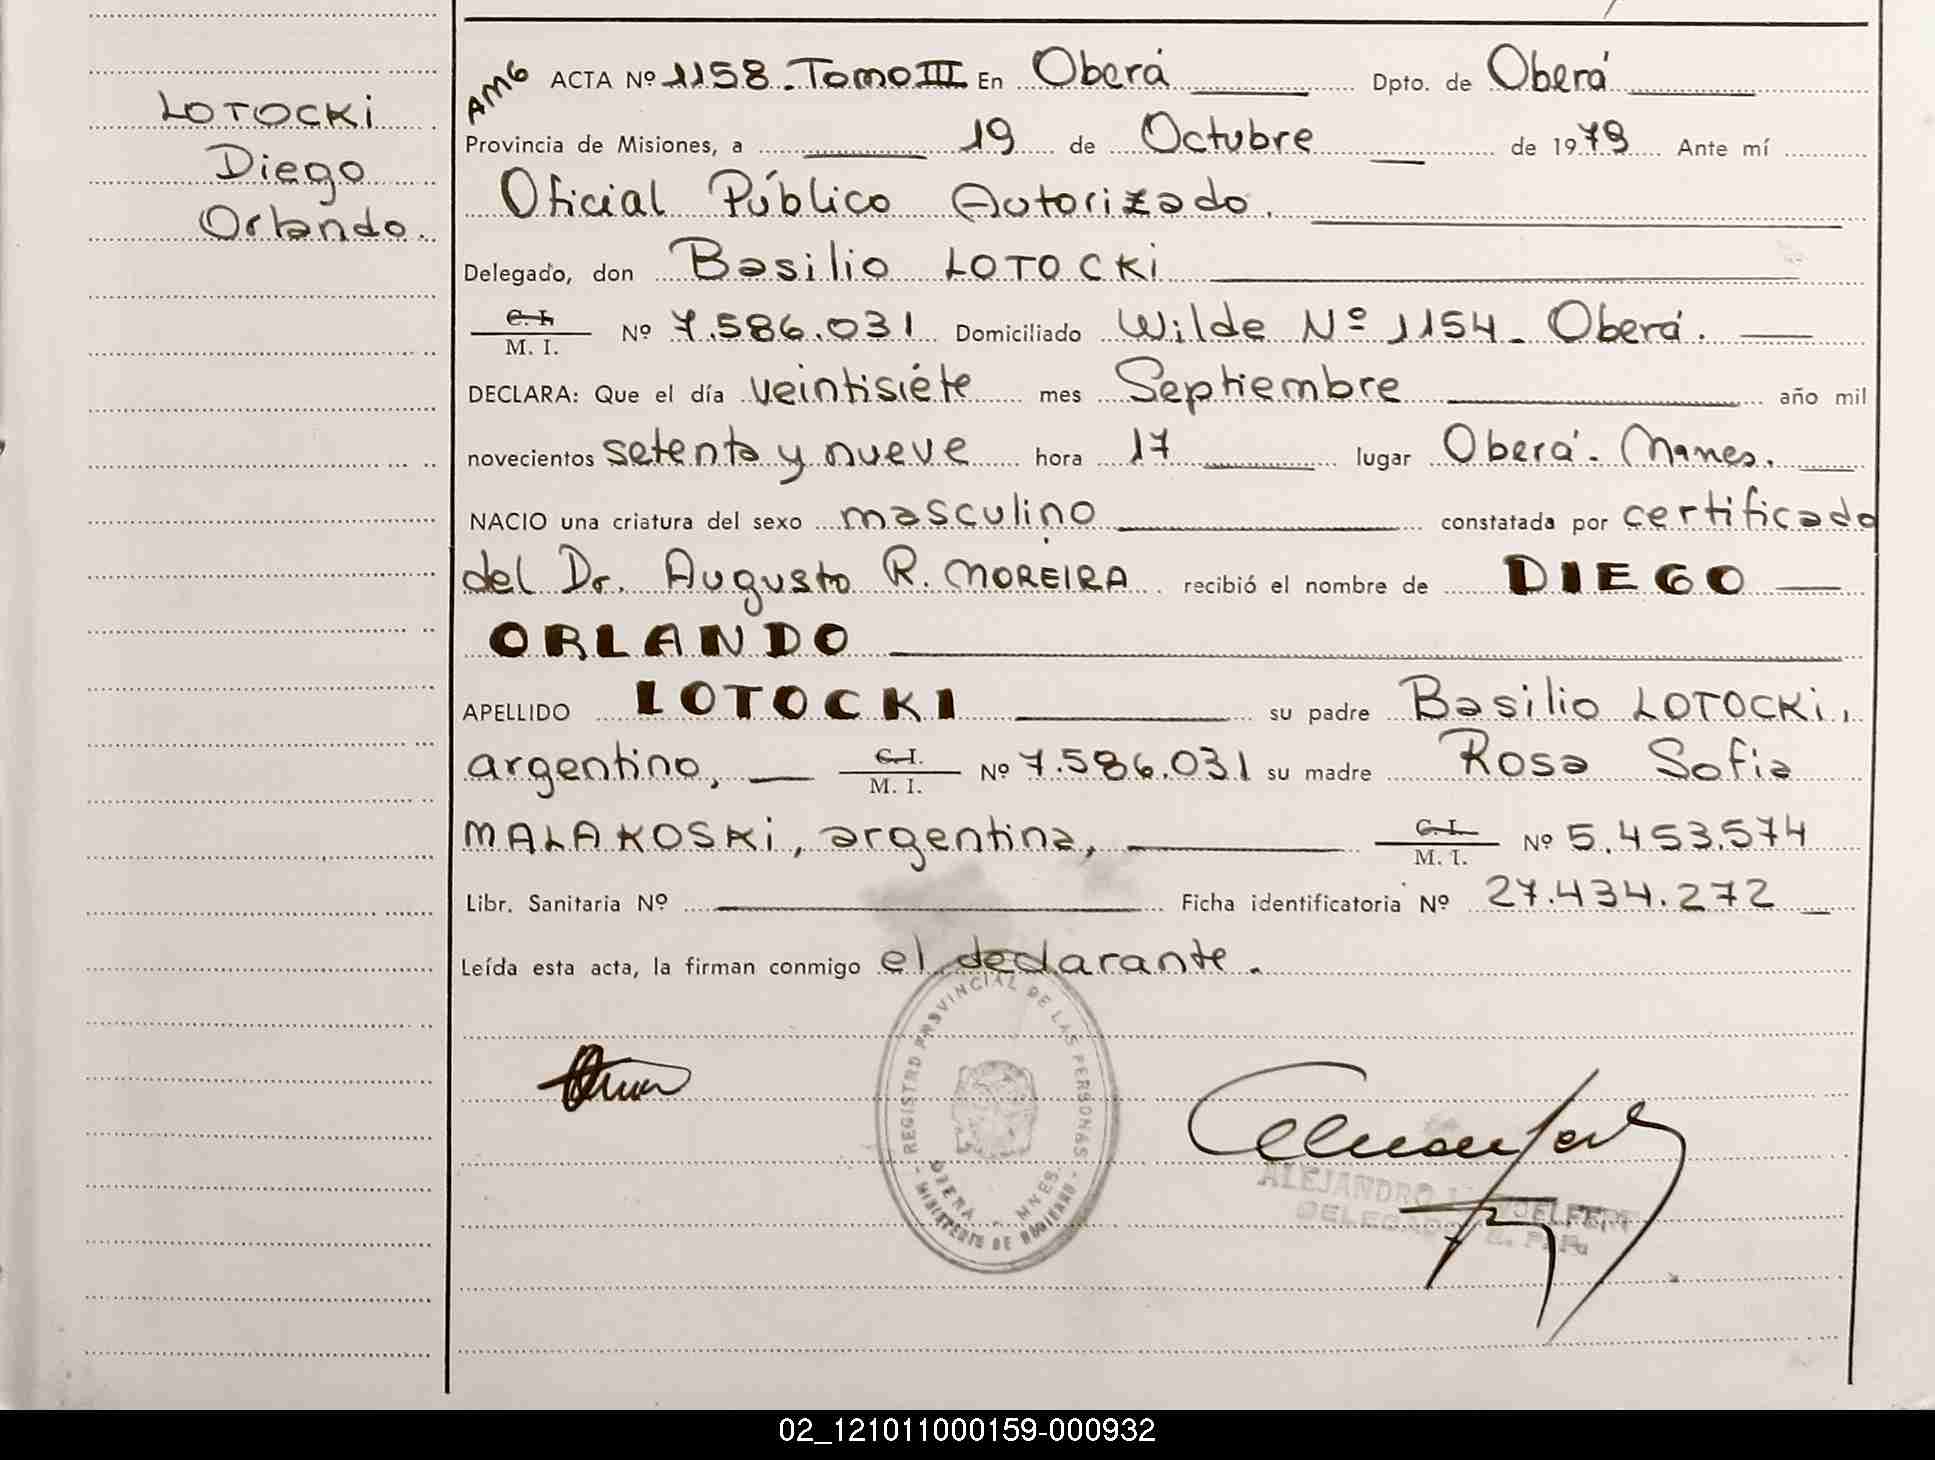 LOTOCKi
Diego
Orlando.
AMG ACTA Nº 1158. Tomo III En Oberá Dpto. de Oberá
Provincia de Misiones, a 19 de Octubre de 1979 Ante mí
Oficial Público Autorizado.
Delegado, don Basilio LOTOCKi
C. I. M. I. Nº 7.586.031 Domiciliado Wilde Nº 1154. Oberá.
DECLARA: Que el día veintisiéte mes Septiembre año mil
novecientos setenta y nueve hora 17 lugar Oberá. Mnes.
NACIO una criatura del sexo masculino constatada por certificado
del Dr. Augusto R. MOREIRA recibió el nombre de DIEGO
ORLANDO
APELLIDO LOTOCKI su padre Basilio LOTOCKi,
argentino, C. I. M. I. Nº 7.586.031 su madre Rosa Sofia
MALAKOSKi, argentina, C. I. M. I. Nº 5.453.574
Libr. Sanitaria Nº Ficha identificatoria Nº 27.434.272
Leída esta acta, la firman conmigo el declarante.
REGISTRO PROVINCIAL DE LAS PERSONAS
OBERA - MNES
MINISTERIO DE GOBIERNO
ALEJANDRO
DELEGADO R. P. P.
02_121011000159-000932